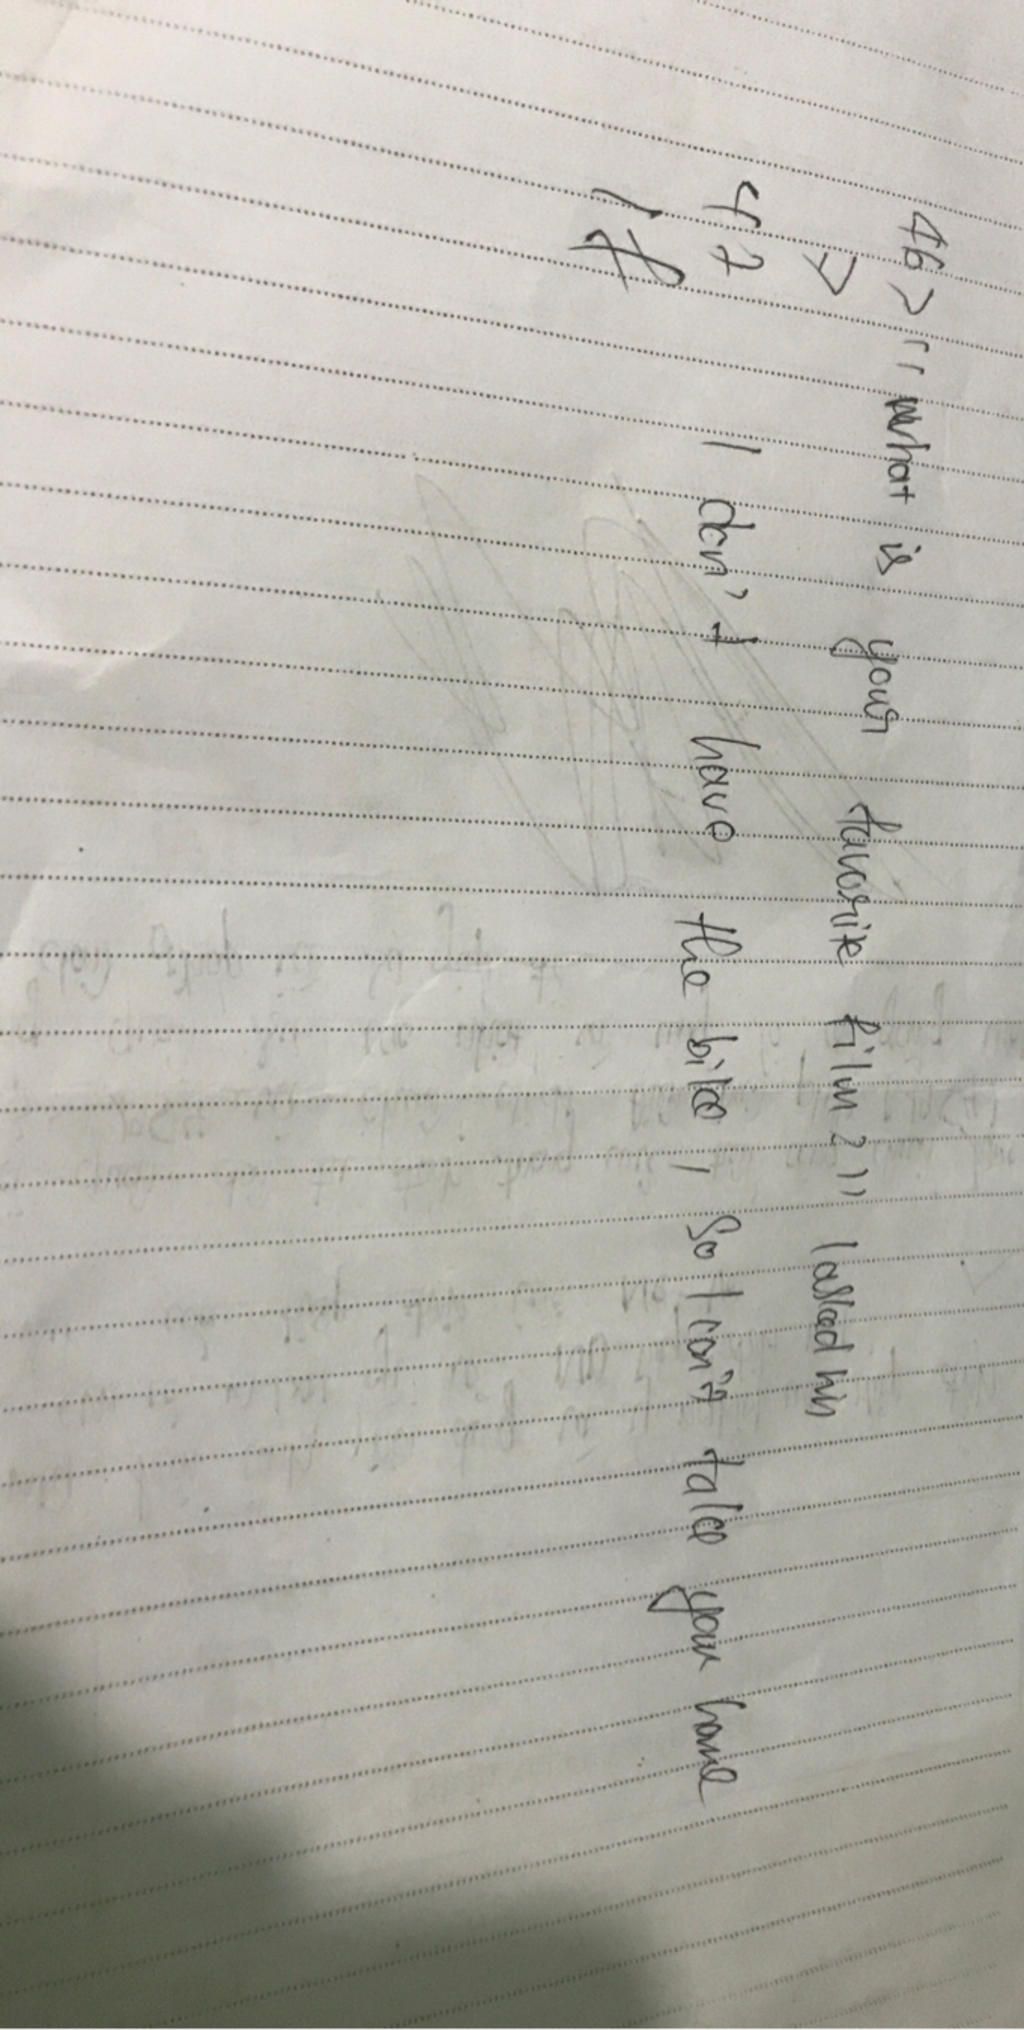 46> "what is your favorite film?" I asked him
47> I don't have the bike, so I can't take your home